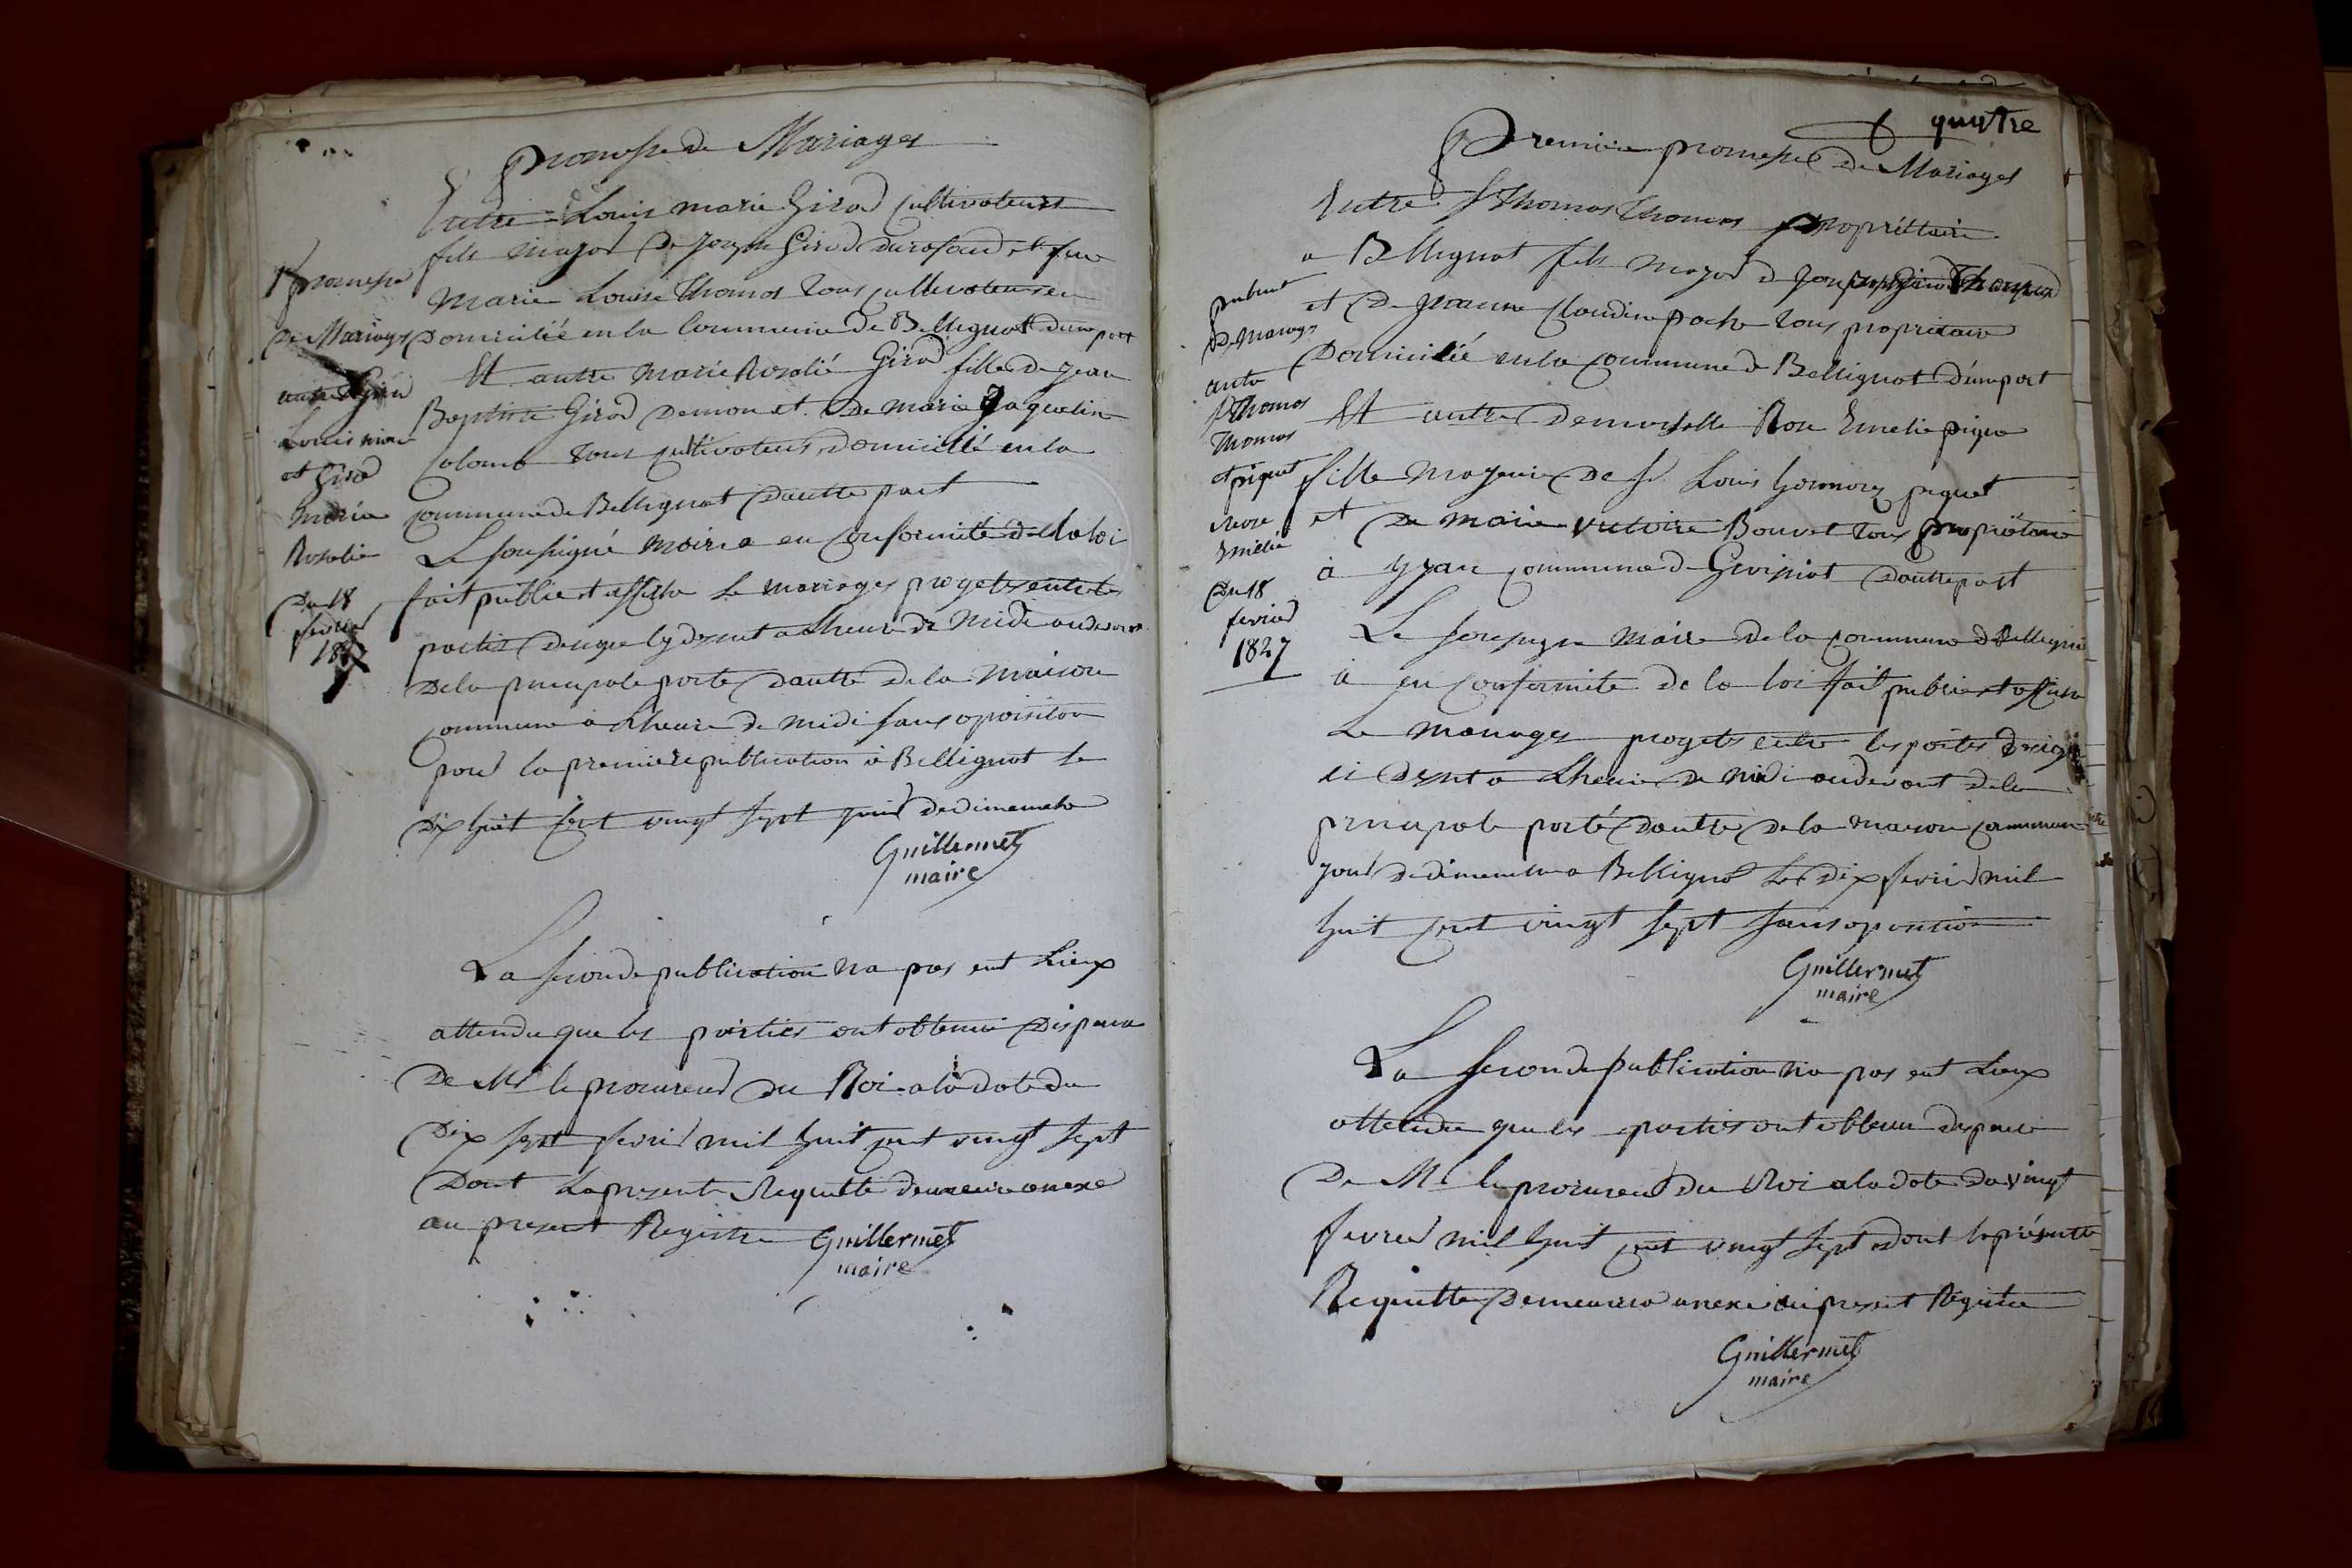 promesse de Mariages
Entre Louis marie Girod cultivateurs
fils major de Joseph Girod et feue
Marie Louise Thomas tous cultivateurs
Domicilié en la Commune de Bellignat dune part
Et autre Marie Rosalie Girod fille de Jean
Baptiste Girod Demon et de marie Jaqueline
Colomb tous cultivateurs domicillé en la
Commune de Bellignat dautte part
Le soussigné maire a en conformité de la loi
fait publier et affiche le mariages progets entre les
parties a lheure de midi audevant
De la principale porte dautte de la maison
commune a lheure de midi sans oposition
pour la premiere publication à Bellignat le
Dix huit cent vingt sept jour de dimanche
Guillermet
maire
promesse
de Mariages
entre Girod
Louis marie
et Girod
marie
Rosalie
Du 18
fevrier
1827
La seconde publication na pas eut Lieux
attendu que les parties ont obtenu Dispence
De Mr le procureur du Roi a la date du
Dix sept fevrier mil huit cent vingt sept
Dont la presente Requette demeure anexe
au present Registre
Guillermet
maire
quatre
Premiere promesse de Mariages
Entre Sr Thomas Thomas propriéttaire
a Bellignat fils major d
et de Jeanne Claudine poche tous propriétaire
Domicilié en la Commune d Bellignat d'une part
Et autre Demoiselle Rose Emelie piquet
fille majeure De Sr Louis honnorez piquet
et De marie victoire Bouvet tous propriétaire
à commune d dautte part
Le soussigne Maire de la commune d Bellignat
à en conformite de la loi fait publier et afficher
Le mariages progets entre les parties
ci a lheure de midi audevant de la
principale porté dautte de la maison commune
jour de dimanche a Bellignat Le Dix fevrier mil
huit cent vingt sept sans oposition
Guillermet
maire
de mariages
entre
Sr Thomas
Thomas
et piquet
Rose
Emélie
Du 18
fevrier
1827
La seconde publication na pas eut Lieux
attendu que les parties ont obtenu dispence
De Mr le procureur du Roi a la date du vingt
fevrier mil huit cent vingt sept dont la présentte
Requette Demeurera anexe au present Registre
Guillermet
maire